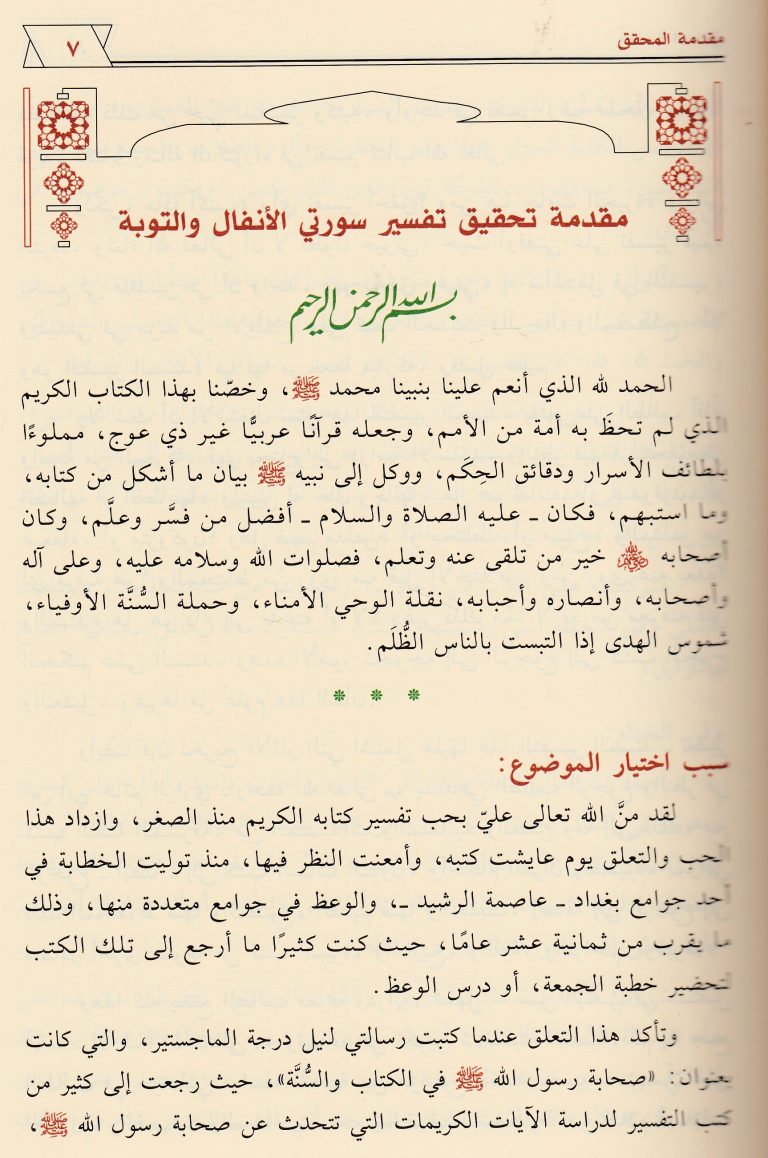 مقدمة المحقق
٧
مقدمة تحقيق تفسير سورتي الأنفال والتوبة
بسم الله الرحمن الرحيم
الحمد لله الذي أنعم علينا بنبينا محمد ﷺ، وخصّنا بهذا الكتاب الكريم
الذي لم تحظَ به أمة من الأمم، وجعله قرآنًا عربيًّا غير ذي عوج، مملوءًا
بلطائف الأسرار ودقائق الحِكَم، ووكل إلى نبيه ﷺ بيان ما أشكل من كتابه،
وما استبهم، فكان ـ عليه الصلاة والسلام ـ أفضل من فسَّر وعلَّم، وكان
أصحابه رضي الله عنهم خير من تلقى عنه وتعلم، فصلوات الله وسلامه عليه، وعلى آله
وأصحابه، وأنصاره وأحبابه، نقلة الوحي الأمناء، وحملة السُّنَّة الأوفياء،
شموس الهدى إذا التبست بالناس الظُّلَم.
* * *
سبب اختيار الموضوع:
لقد منَّ الله تعالى عليّ بحب تفسير كتابه الكريم منذ الصغر، وازداد هذا
الحب والتعلق يوم عايشت كتبه، وأمعنت النظر فيها، منذ توليت الخطابة في
أحد جوامع بغداد ـ عاصمة الرشيد ـ، والوعظ في جوامع متعددة منها، وذلك
ما يقرب من ثمانية عشر عامًا، حيث كنت كثيرًا ما أرجع إلى تلك الكتب
لتحضير خطبة الجمعة، أو درس الوعظ.
وتأكد هذا التعلق عندما كتبت رسالتي لنيل درجة الماجستير، والتي كانت
بعنوان: «صحابة رسول الله ﷺ في الكتاب والسُّنَّة»، حيث رجعت إلى كثير من
كتب التفسير لدراسة الآيات الكريمات التي تتحدث عن صحابة رسول الله ﷺ،